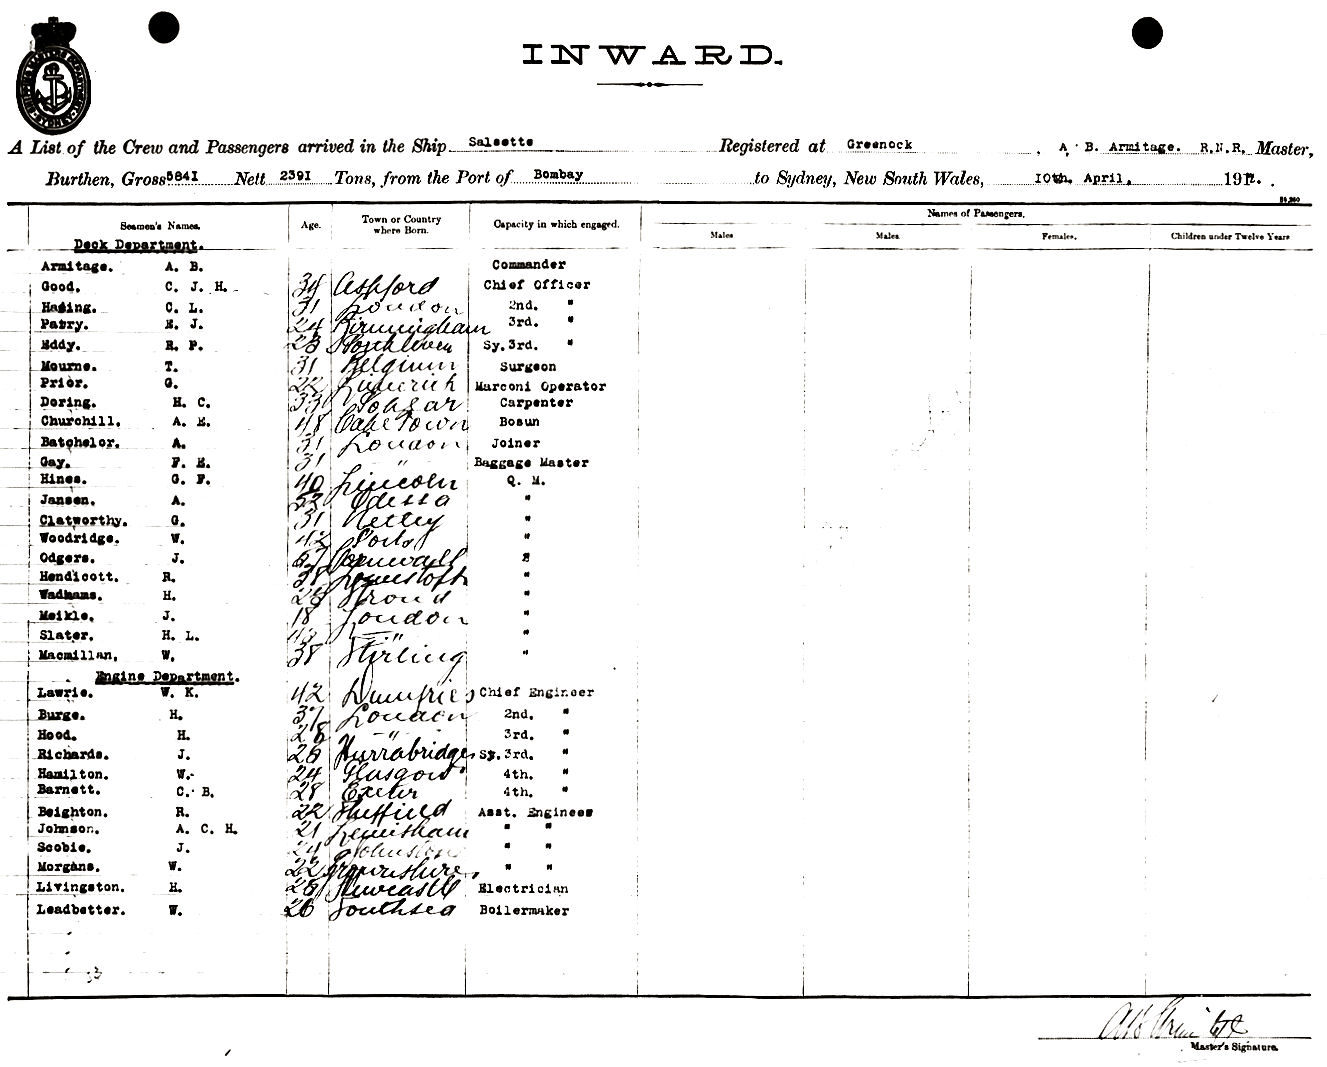 INWARD.
A List of the Crew and Passengers arrived in the Ship Salsette Registered at Greenock , A. B. Armitage. R.N.R. Master,
Burthen, Gross 5841 Nett 2391 Tons, from the Port of Bombay to Sydney, New South Wales, 10th. April, 1917.
Seamen's Names. Age. Town or Country where Born. Capacity in which engaged. Names of Passengers.
Males Males Females. Children under Twelve Years
Deck Department.
Armitage. A. B. Commander
Good. C. J. H. 34 Ashford Chief Officer
Hading. C. L. 31 London 2nd. "
Parry. E. J. 24 Birmingham 3rd. "
Eddy. R. P. 23 Sy. 3rd. "
Mourne. T. 31 Belgium Surgeon
Prior. G. 22 Limerick Marconi Operator
Doring. H. C. 33 Carpenter
Churchill. A. E. 48 Cape Town Bosun
Batchelor. A. 31 London Joiner
Gay. F. E. 31 " Baggage Master
Hines. G. F. 40 Lincoln Q. M.
Jansen. A. Odessa "
Clatworthy. G. 31 Netley "
Woodridge. W. 42 Ports "
Odgers. J. 57 Cornwall "
Hendicott. R. 38 Lowestoft "
Wadhams. H. Stroud "
Meikle. J. 18 London "
Slater. H. L. " "
Macmillan. W. 38 Stirling "
Engine Department.
Lawrie. W. K. 42 Dumfries Chief Engineer
Burge. H. 37 London 2nd. "
Hood. H. 28 " 3rd. "
Richards. J. 26 Hurrabridge Sy. 3rd. "
Hamilton. W. 24 Glasgow 4th. "
Barnett. C. B. 28 Exeter 4th. "
Beighton. R. 22 Sheffield Asst. Engineer
Johnson. A. C. H. 21 Lewisham " "
Scobie. J. 24 Johnstone " "
Morgans. W. 22 " "
Livingston. H. 28 Newcastle Electrician
Leadbetter. W. 26 Southsea Boilermaker
33
Master's Signature.